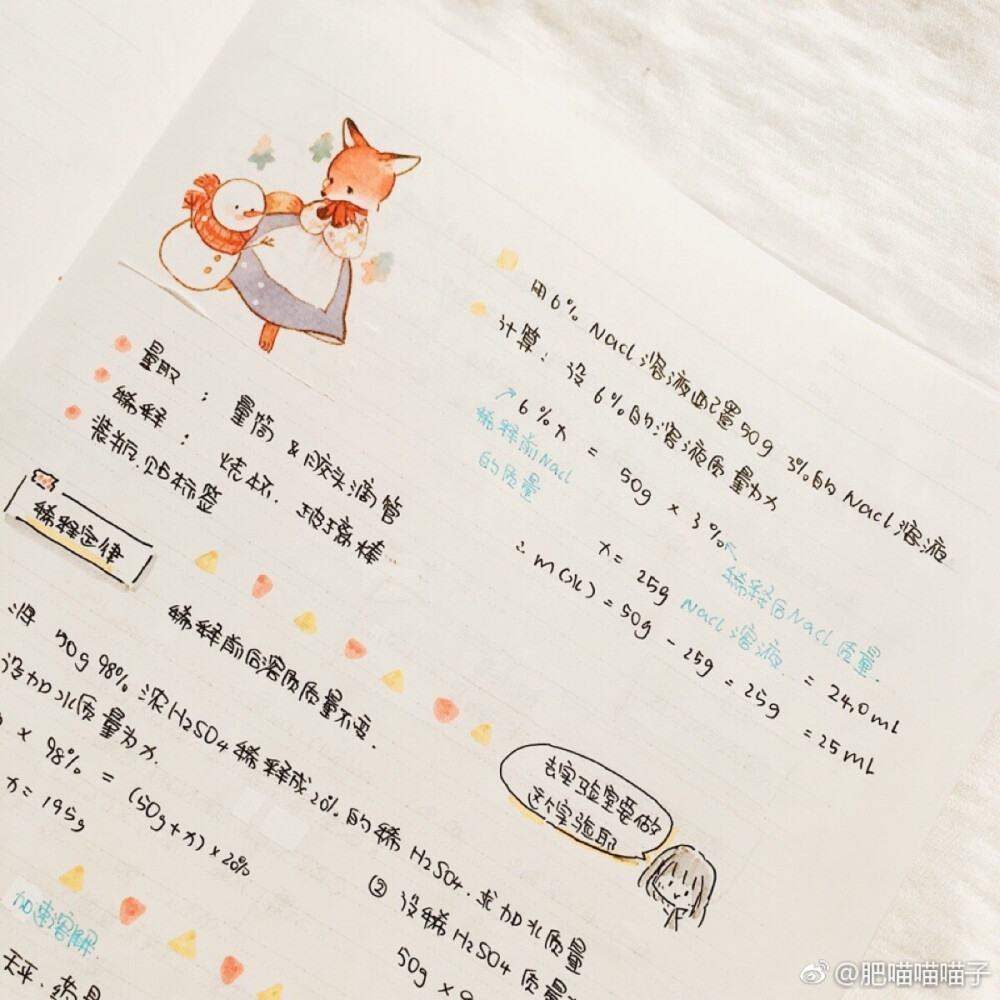 用6% NaCl溶液配置50g 3%的NaCl溶液
计算：设6%的溶液质量为x
6%x = 50g × 3%
稀释前NaCl
的质量
x = 25g
稀释后NaCl质量
NaCl溶液 = 24.0mL
∴ m(水) = 50g - 25g = 25g = 25mL
量取：量筒 & 胶头滴管
稀释：烧杯、玻璃棒
装瓶、贴标签
稀释定律
稀释前后溶质质量不变.
将50g 98%浓H2SO4稀释成20%的稀H2SO4. 求加水质量
设加水质量为x.
× 98% = (50g+x) × 20%
x = 195g
去实验室要做
这个实验耶
② 设稀H2SO4质量
50g ×
加速溶解
天平、
@肥喵喵喵子